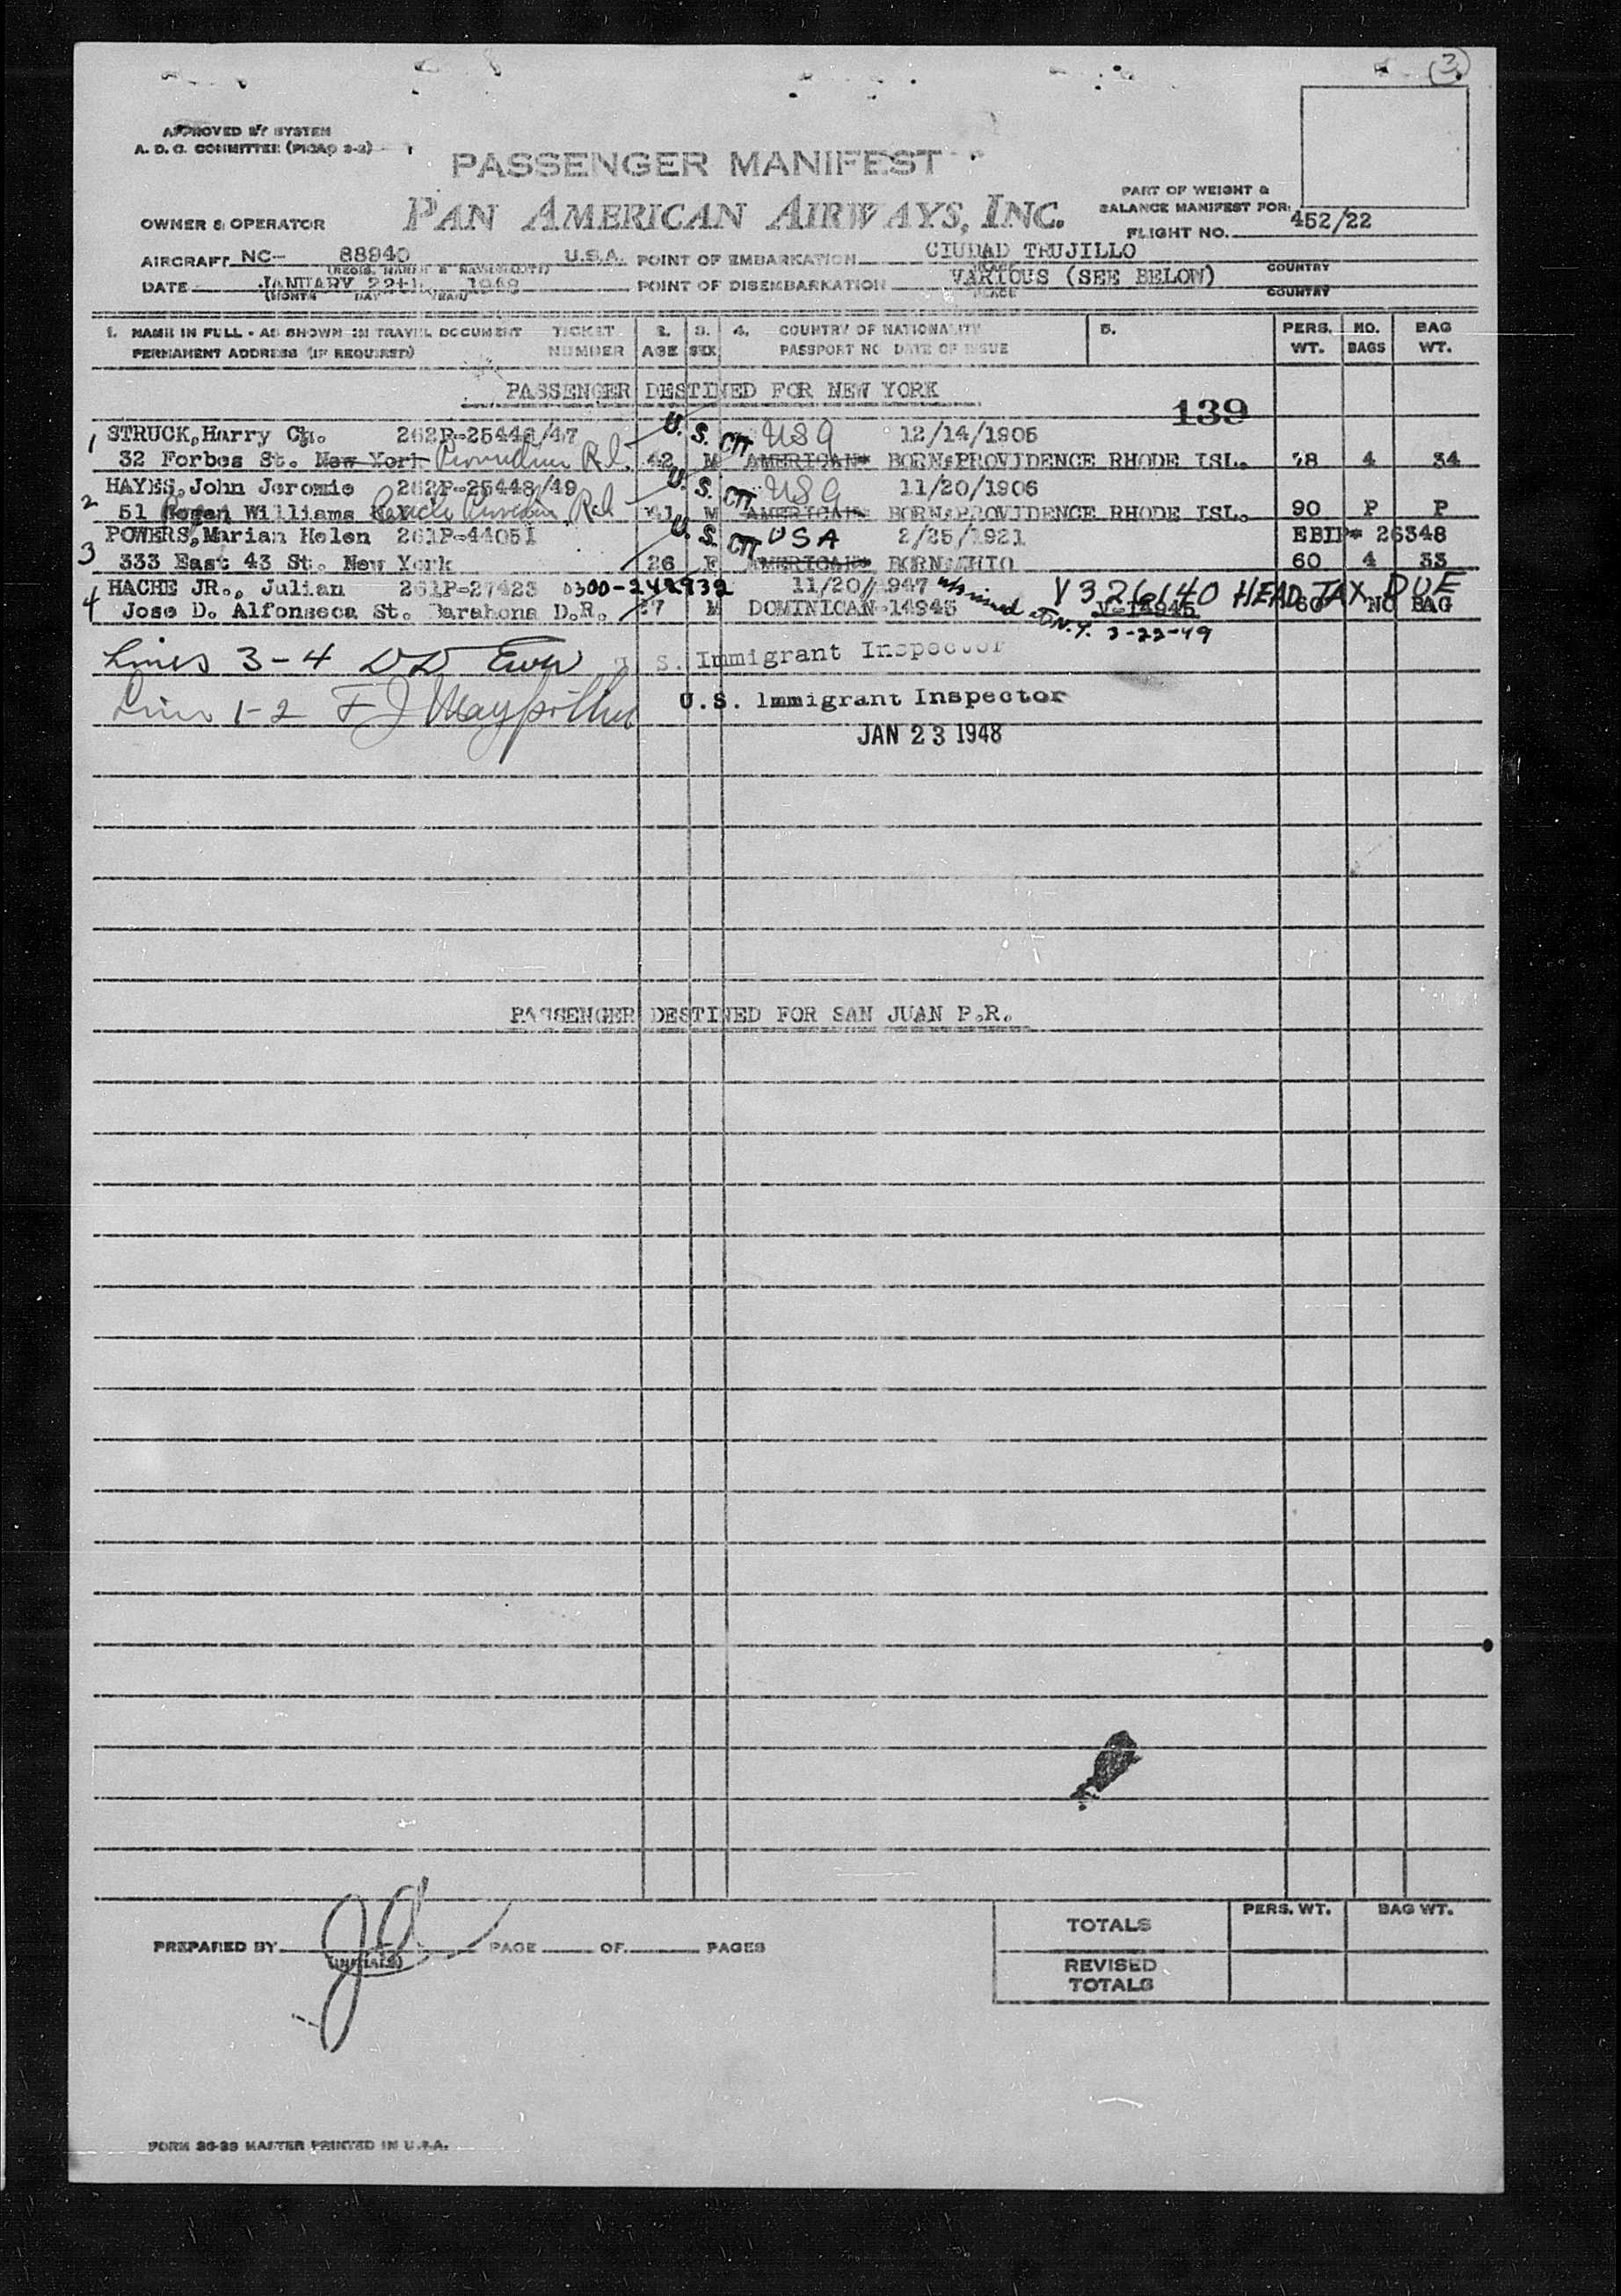 3
APPROVED BY SYSTEM
A. D. C. COMMITTEE (PICAO 3-2)
PASSENGER MANIFEST
PART OF WEIGHT &
BALANCE MANIFEST FOR:
OWNER & OPERATOR PAN AMERICAN AIRWAYS, INC.
FLIGHT NO. 452/22
AIRCRAFT NC- 88940 U.S.A. POINT OF EMBARKATION CIUDAD TRUJILLO
(REGIS. MARKS & NATIONALITY) PLACE COUNTRY
DATE JANUARY 22th 1948 POINT OF DISEMBARKATION VARIOUS (SEE BELOW)
(MONTH DAY YEAR) PLACE COUNTRY
1. NAME IN FULL - AS SHOWN IN TRAVEL DOCUMENT TICKET 2. 3. 4. COUNTRY OF NATIONALITY 5. PERS. NO. BAG
PERMANENT ADDRESS (IF REQUIRED) NUMBER AGE SEX PASSPORT NO DATE OF ISSUE WT. BAGS WT.
PASSENGER DESTINED FOR NEW YORK
139
1 STRUCK, Harry Ch. 262P-25448/47 U.S. CIT USA 12/14/1905
32 Forbes St. New York Providence R.I. 42 M AMERICAN* BORN:PROVIDENCE RHODE ISL. 78 4 34
2 HAYES, John Jeromie 262P-25448/49 U.S. CIT USA 11/20/1906
51 Williams 41 M AMERICAN BORN:PROVIDENCE RHODE ISL. 90 P P
3 POWERS, Marian Helen 261P-44051 U.S. CIT USA 2/25/1921 EBIP* 26348
333 East 43 St. New York 26 F AMERICAN* BORN:OHIO 60 4 33
4 HACHE JR., Julian 261P-27423 0300-242932 11/20/1947 V326140 HEAD TAX DUE
Jose D. Alfonseca St. Barahona D.R. M DOMINICAN 14945 V-14945 60 NO BAG
N.Y. 3-22-49
Lines 3-4 U. S. Immigrant Inspector
Lines 1-2 U.S. Immigrant Inspector
JAN 23 1948
PASSENGER DESTINED FOR SAN JUAN P.R.
PERS. WT. BAG WT.
TOTALS
PREPARED BY PAGE OF PAGES
(INITIALS)
REVISED
TOTALS
FORM 36-39 MASTER PRINTED IN U.S.A.